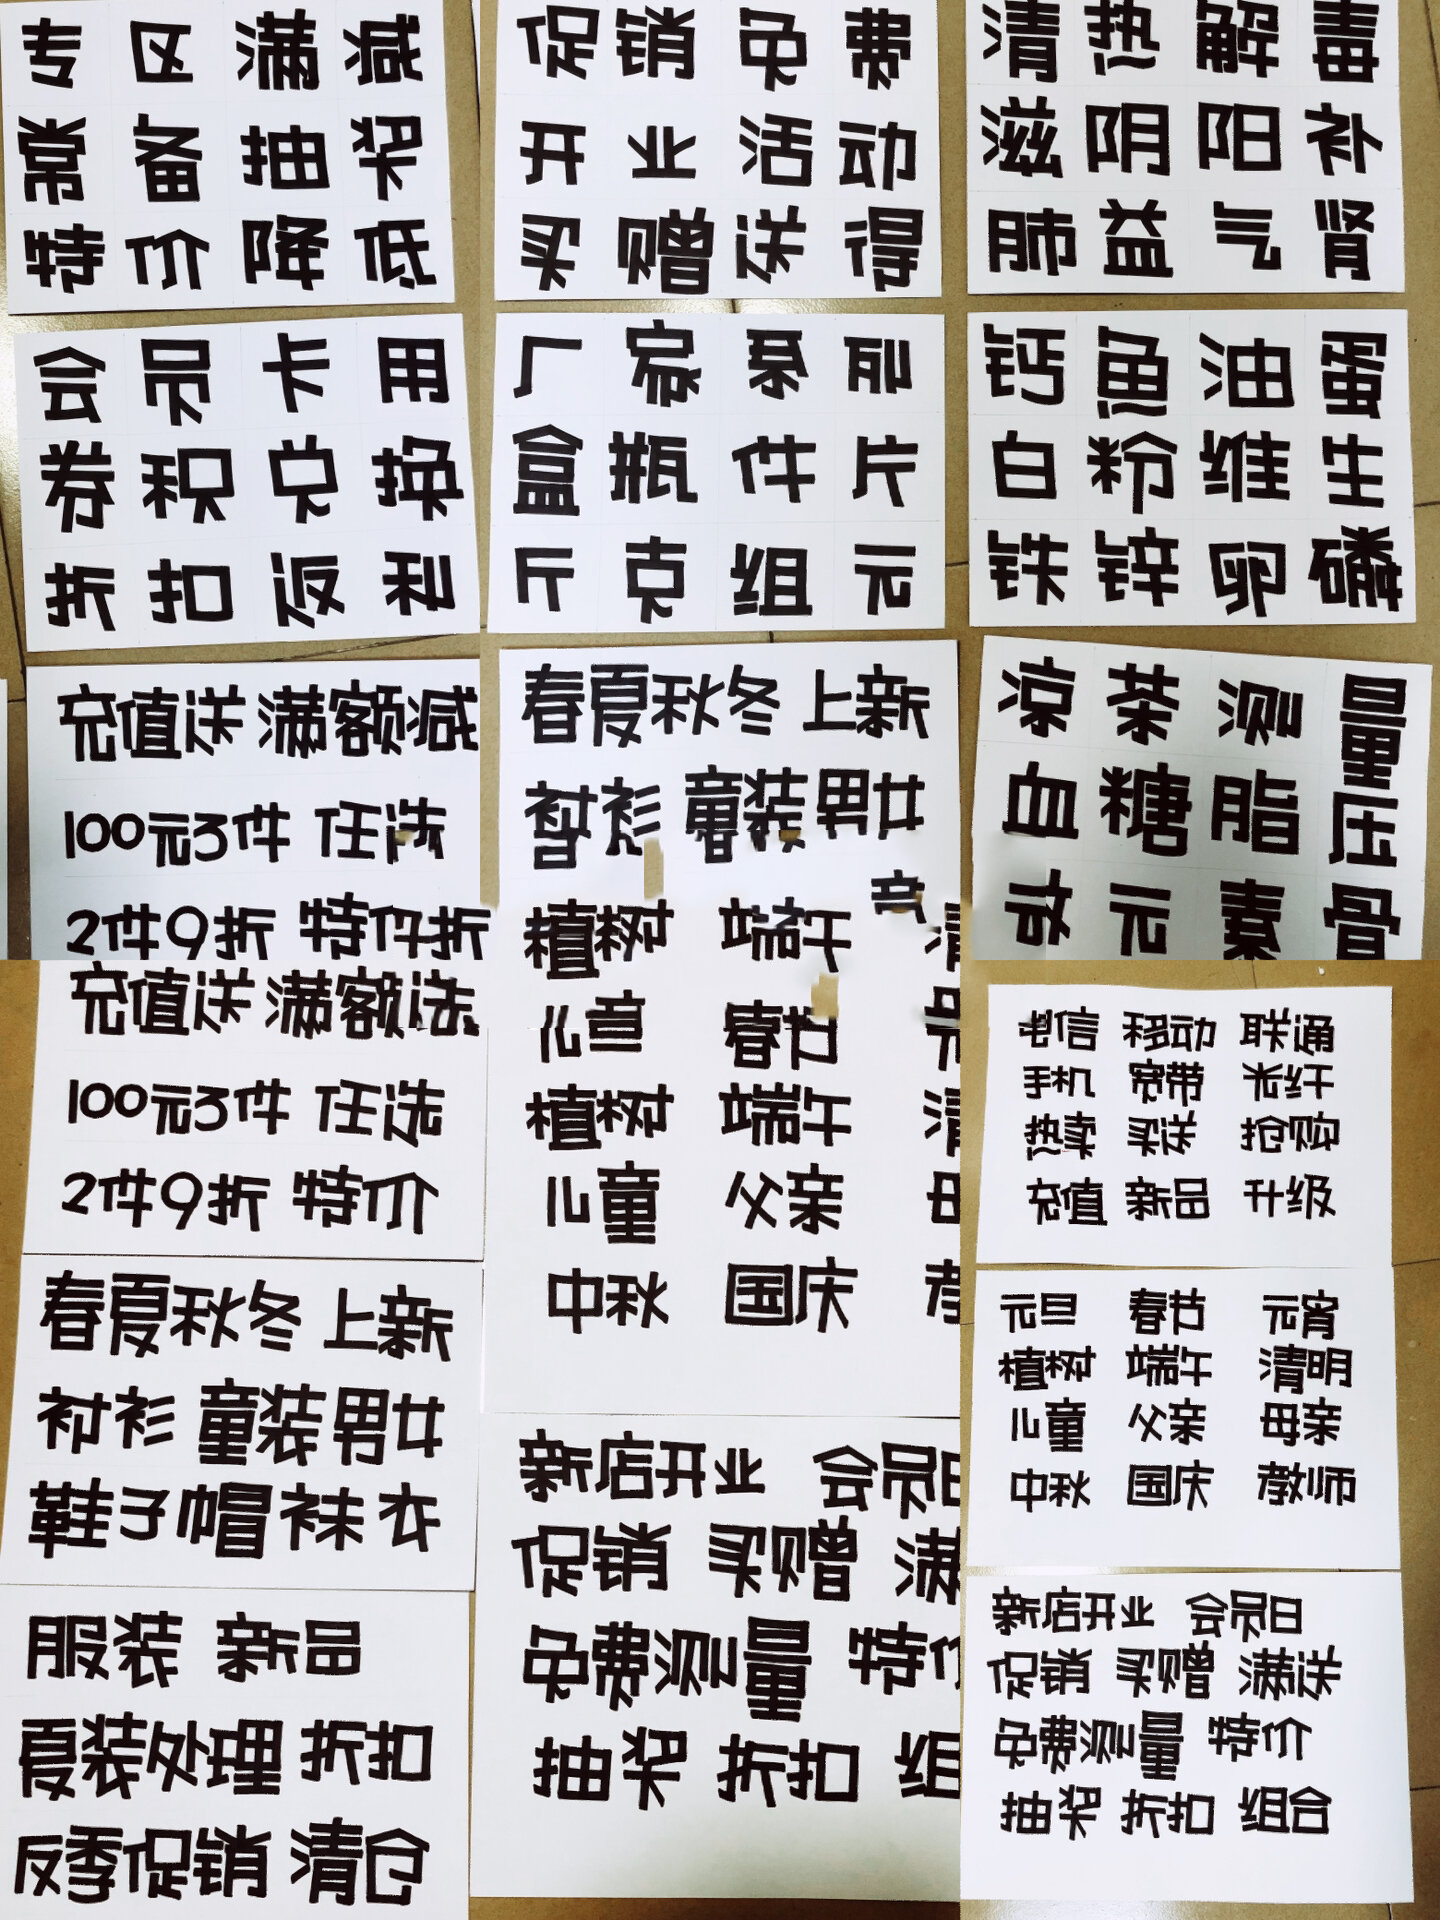 专区满减
常备抽奖
特价降低
促销免费
开业活动
买赠送得
清热解毒
滋阴阳补
肺益气肾
会员卡用
券积兑换
折扣返利
厂家系列
盒瓶件片
斤克组元
钙鱼油蛋
白粉维生
铁锌卵磷
充值送 满额减
100元3件 任选
2件9折 特
折
春夏秋冬 上新
衬衫 童装男女
植树 端午
儿 春节
植树 端午
儿童 父亲
中秋 国庆
凉茶测量
血糖脂压
元素骨
充值送 满额
100元3件 任选
2件9折 特价
春夏秋冬 上新
衬衫 童装男女
鞋子帽袜衣
服装 新品
夏装处理 折扣
反季促销 清仓
新店开业 会员日
促销 买赠 满
免费测量 特价
抽奖 折扣 组
电信 移动 联通
手机 宽带 光纤
热卖 买送 抢购
充值 新品 升级
元旦 春节 元宵
植树 端午 清明
儿童 父亲 母亲
中秋 国庆 教师
新店开业 会员日
促销 买赠 满送
免费测量 特价
抽奖 折扣 组合